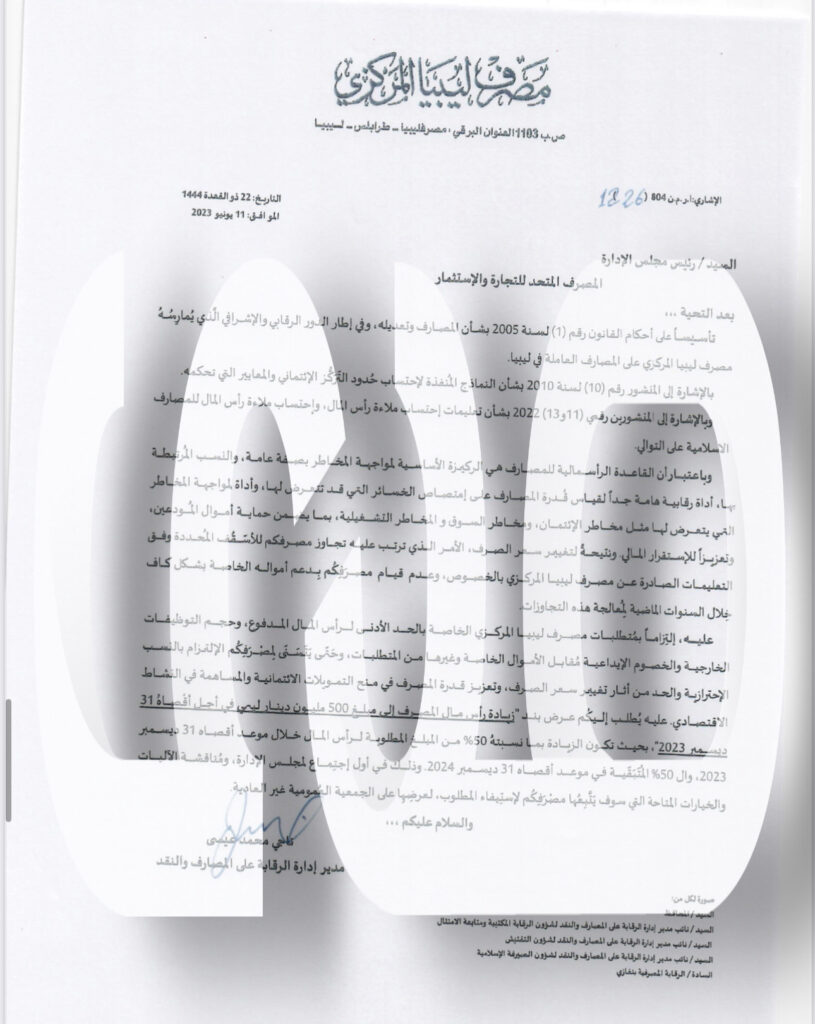 مصرف ليبيا المركزي
ص.ب 1103 العنوان البرقي : مصرفليبيا – طرابلس – ليبيا
الإشاري: أ.ر.م.ن 804 (1226
التاريخ: 22 ذو القعدة 1444
الموافق: 11 يونيو 2023
السيد / رئيس مجلس الإدارة
المصرف المتحد للتجارة والإستثمار
بعد التحية ...
تأسيساً على أحكام القانون رقم (1) لسنة 2005 بشأن المصارف وتعديله، وفي إطار الدور الرقابي والإشرافي الّذي يُمارسُهُ
مصرف ليبيا المركزي على المصارف العاملة في ليبيا.
بالإشارة إلى المنشور رقم (10) لسنة 2010 بشأن النماذج المُنفذة لإحتساب حُدود التَرَكُّز الإئتماني والمعايير التي تحكمه.
وبالإشارة إلى المنشورين رقمي (11و13) 2022 بشأن تعليمات إحتساب ملاءة رأس المال، وإحتساب ملاءة رأس المال للمصارف
الاسلامية على التوالي.
وباعتبار أن القاعدة الرأسمالية للمصارف هي الركيزة الأساسية لمواجهة المخاطر بصفة عامة، والنسب المُرتبطة
بها، أداة رقابية هامة جداً لقياس قُدرة المصارف على إمتصاص الخسائر التي قد تتعرض لها، وأداة لمواجهة المخاطر
التي يتعرض لها مثل مخاطر الإئتمان، ومخاطر السوق و المخاطر التشغيلية، بما يضمن حماية أموال المُودعين،
وتعزيزاً للإستقرار المالي. ونتيجةً لتغيير سعر الصرف، الأمر الذي ترتب عليه تجاوز مصرفكم للأسقُف المُحددة وفق
التعليمات الصادرة عن مصرف ليبيا المركزي بالخصوص، وعدم قيام مصرَفِكُم بِدعم أمواله الخاصة بشكل كاف
خِلال السنوات الماضية لِمُعالجة هذه التجاوزات.
عليه، إلتِزاماً بمُتطلبات مصرف ليبيا المركزي الخاصة بالحد الأدنى لرأس المال المدفوع، وحجم التوظيفات
الخارجية والخصوم الإيداعية مُقابل الأموال الخاصة وغيرها من المتطلبات، وحَتَّى يَتَسَنَّى لِمَصْرَفِكُم الإلتزام بالنسب
الإحترازية والحد من أثار تغيير سعر الصرف، وتعزيز قدرة المصرف في منح التمويلات الائتمانية والمساهمة في النشاط
الاقتصادي. عليه يُطلب إليكُم عرض بند "زيادة رأس مال المصرف إلى مبلغ 500 مليون دينار ليبي في أجل أقْصاهُ 31
ديسمبر 2023"، بحيث تكون الزيادة بما نسبتهُ 50% من المبلغ المطلوبة لرأس المال خلال موعد أقصاه 31 ديسمبر
2023، وال 50% المُتبَقية في موعد أقصاه 31 ديسمبر 2024. وذلك في أول إجتِماع لمجلس الإدارة، ومُناقشة الآليات
والخيارات المتاحة التي سوف يَتَّبِعُها مَصْرَفِكُم لإستيفاء المطلوب، لعرضِها على الجمعية العمومية غير العادية.
والسلام عليكم ...
ناجي محمد عيسى
مدير إدارة الرقابة على المصارف والنقد
صورة لكل من:
السيد / المحافظ
السيد / نائب مدير إدارة الرقابة على المصارف والنقد لشؤون الرقابة المكتبية ومتابعة الامتثال
السيد / نائب مدير إدارة الرقابة على المصارف والنقد لشؤون التفتيش
السيد / نائب مدير إدارة الرقابة على المصارف والنقد لشؤون الصيرفة الإسلامية
السادة / الرقابة المصرفية بنغازي